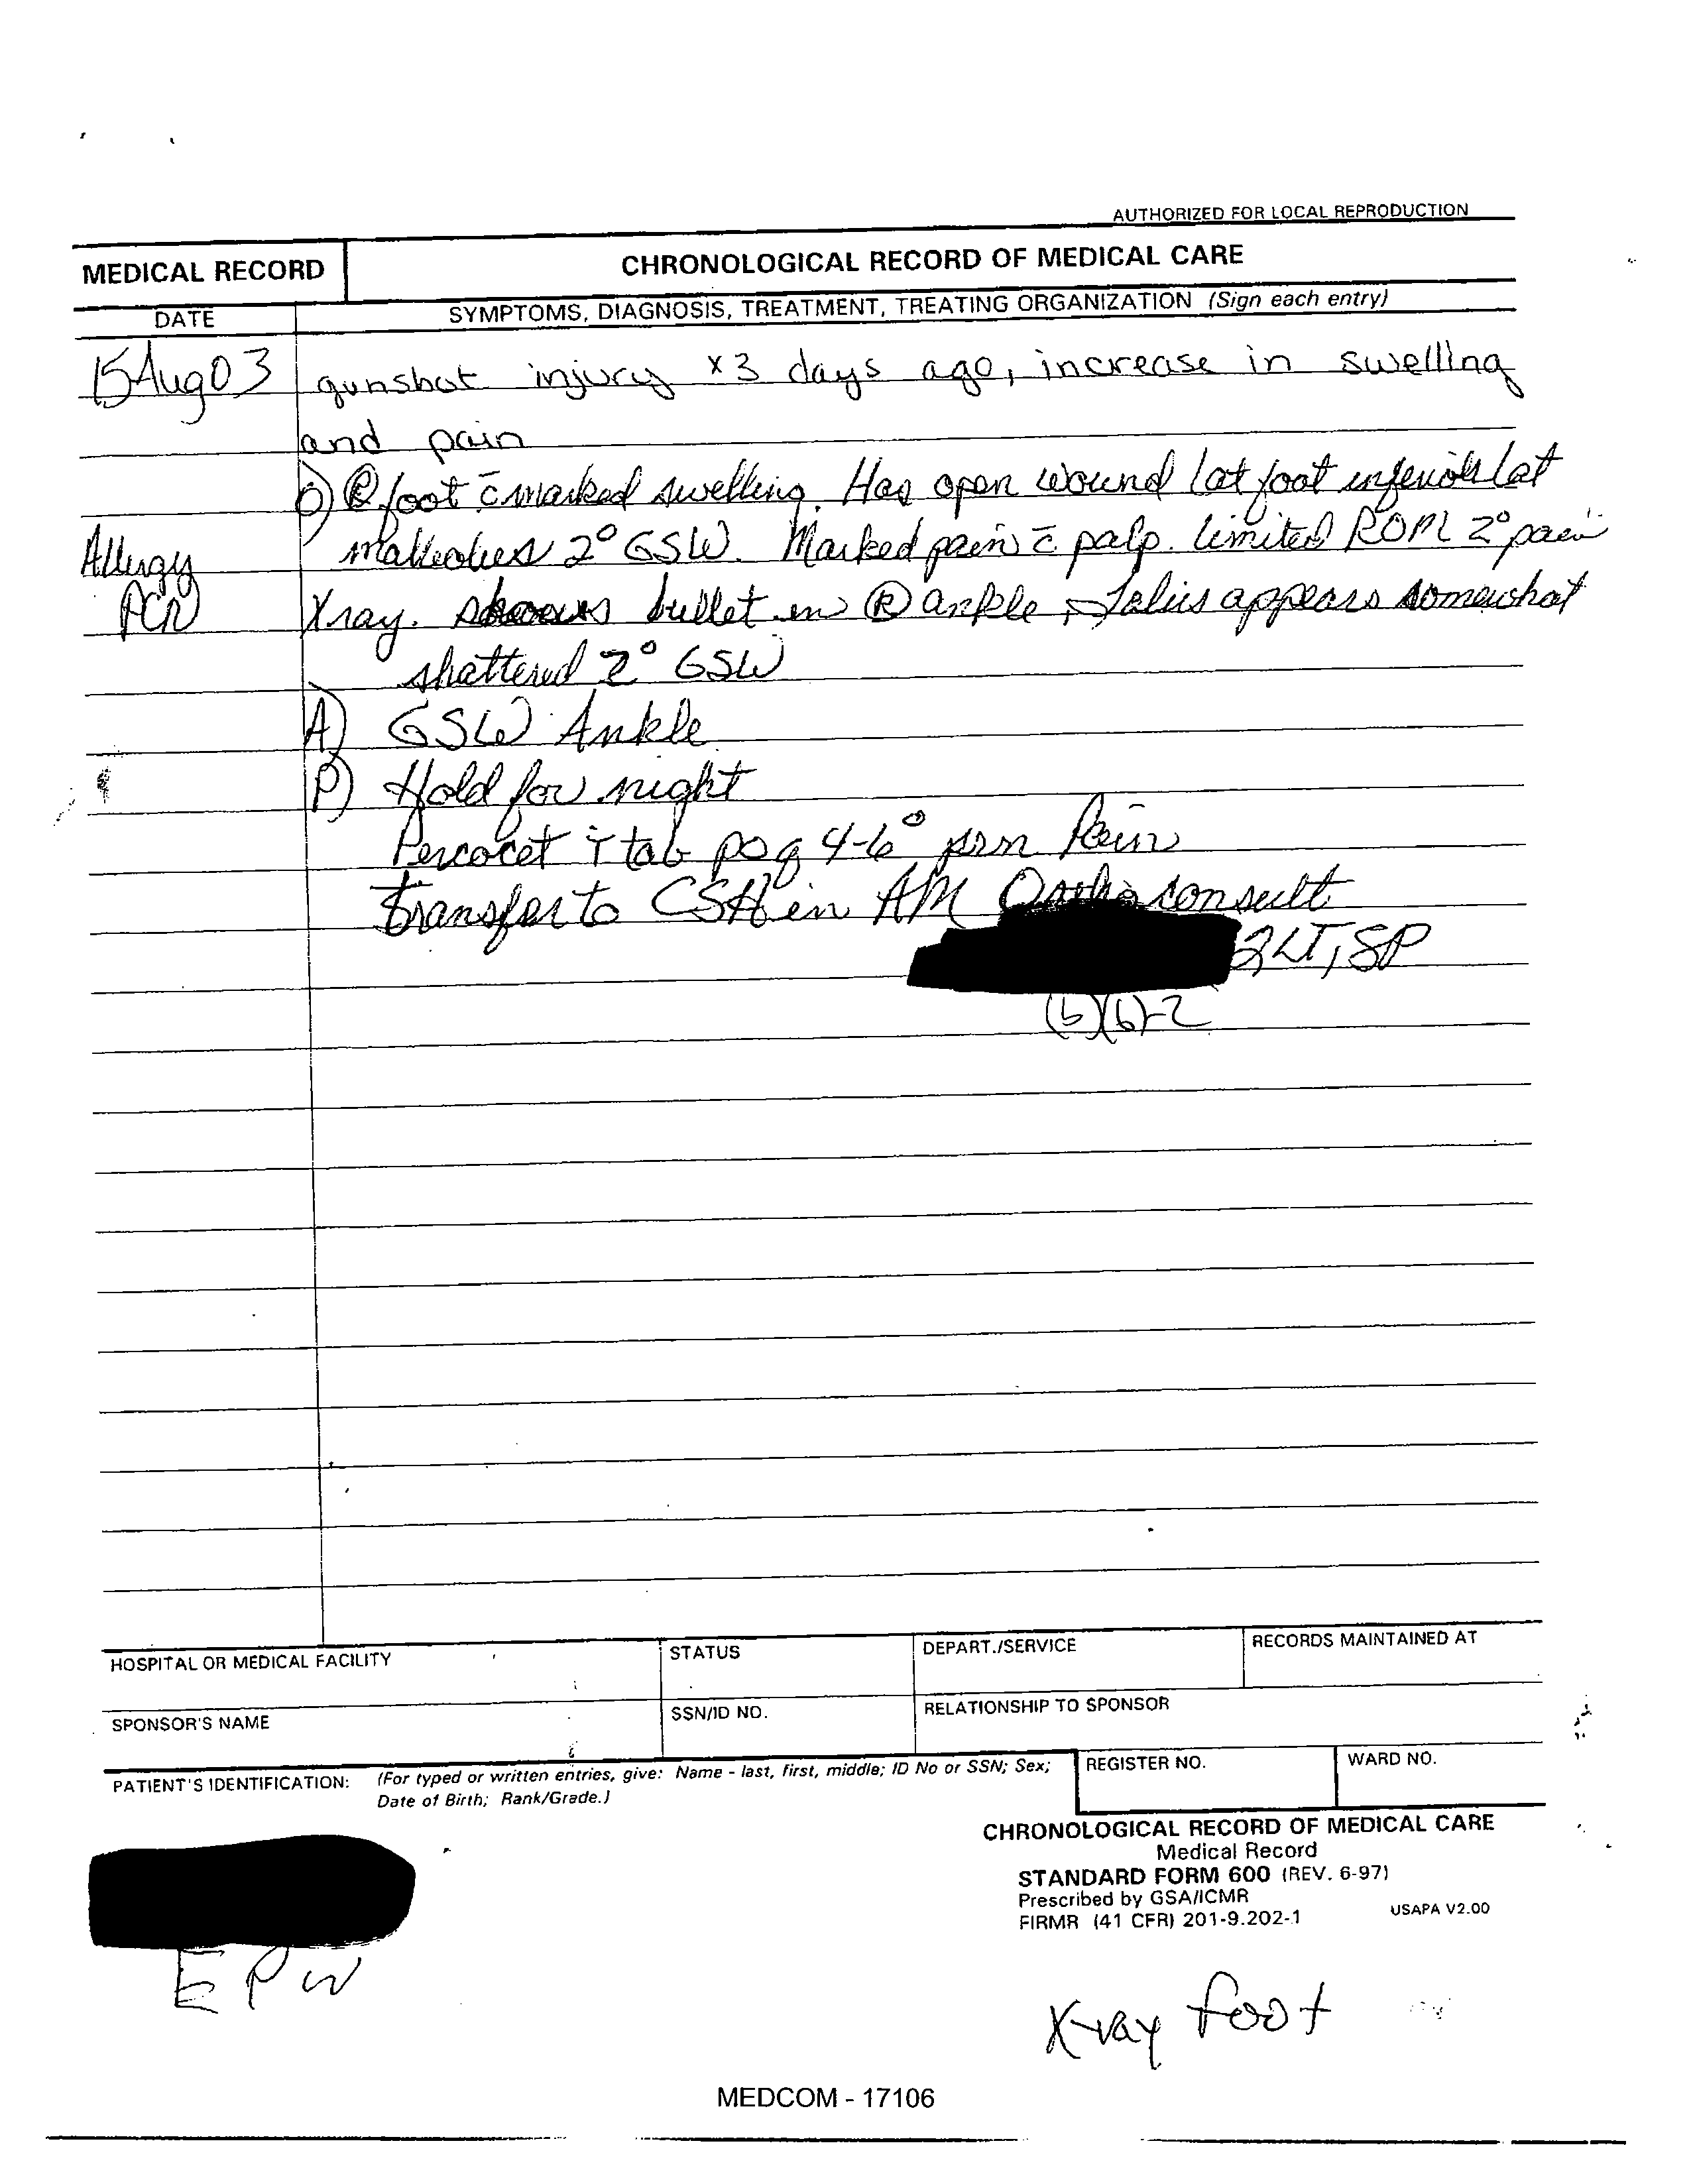 AUTHORIZED FOR LOCAL REPRODUCTION
MEDICAL RECORD
CHRONOLOGICAL RECORD OF MEDICAL CARE
DATE
SYMPTOMS, DIAGNOSIS, TREATMENT, TREATING ORGANIZATION (Sign each entry)
15Aug03 gunshot injury x3 days ago, increase in swelling
and pain
O) Ⓡ foot c̄ marked swelling. Has open wound lat foot inferior lat
malleolus 2° GSW. Marked pain c̄ palp. limited ROM 2° pain
Allergy
PCN
Xray. shows bullet in Ⓡ ankle, Talus appears somewhat
shattered 2° GSW
A) GSW Ankle
P) Hold for night
Percocet ī tab po q 4-6° prn Pain
transfer to CSH in AM Ortho consult
2LT, SP
(b)(6)-2
HOSPITAL OR MEDICAL FACILITY
STATUS
DEPART./SERVICE
RECORDS MAINTAINED AT
SPONSOR'S NAME
SSN/ID NO.
RELATIONSHIP TO SPONSOR
PATIENT'S IDENTIFICATION: (For typed or written entries, give: Name - last, first, middle; ID No or SSN; Sex;
Date of Birth; Rank/Grade.)
REGISTER NO.
WARD NO.
CHRONOLOGICAL RECORD OF MEDICAL CARE
Medical Record
STANDARD FORM 600 (REV. 6-97)
Prescribed by GSA/ICMR
FIRMR (41 CFR) 201-9.202-1
USAPA V2.00
EPW
X-ray foot
MEDCOM - 17106